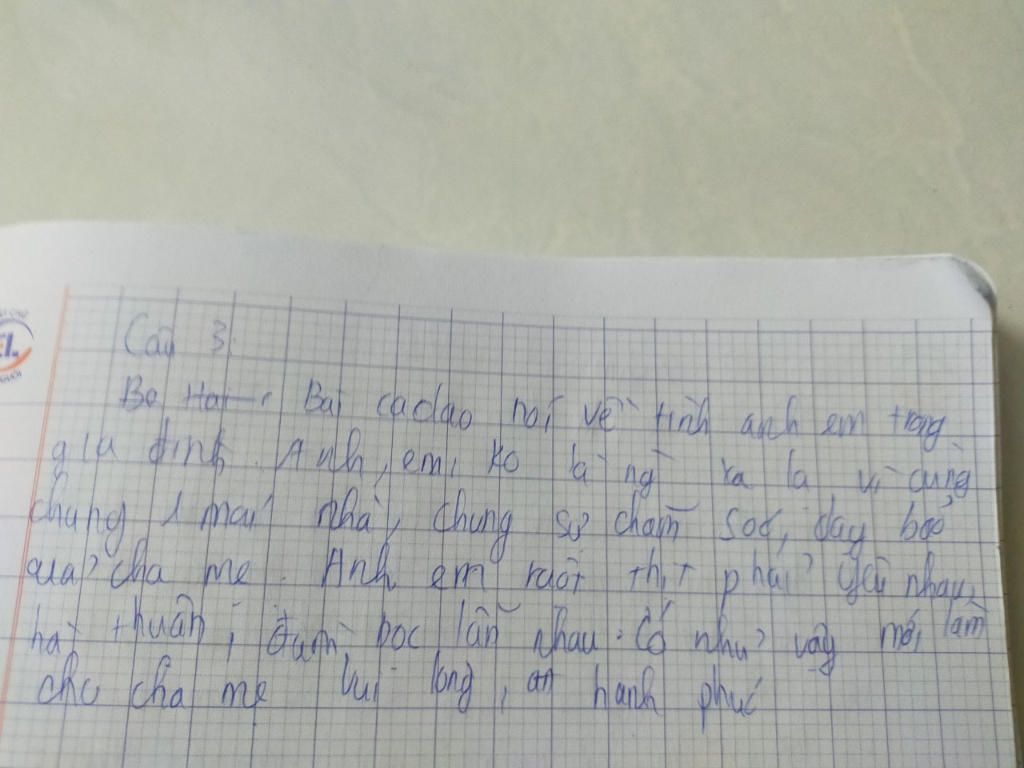 Câu 3
Bài ca dao nói về tình anh em trong
gia đình. Anh, em, ko là ng xa lạ vì cùng
chung 1 mái nhà, chung sự chăm sóc, dạy bảo
của cha mẹ. Anh em ruột thịt phải yêu nhau,
hoà thuận, đùm bọc lẫn nhau. Có như vậy mới làm
cho cha mẹ vui lòng, hạnh phúc